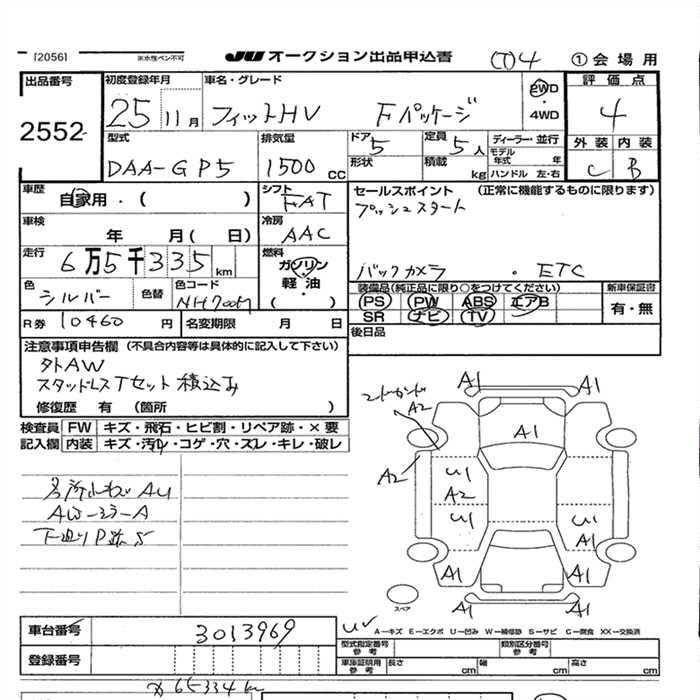 [2056] ※水性ペン不可 JU オークション出品申込書 ① 4 ①会場用
出品番号 2552
初度登録年月 25 11月
車名・グレード フィットHV Fパッケージ
2WD・4WD
評価点 4
型式 DAA-GP5
排気量 1500 CC
ドア 5
形状
定員 5人
積載 kg
ディーラー・並行
モデル年式 年
ハンドル 左・右
外装 C
内装 B
車歴 自家用・( )
シフト FAT
セールスポイント (正常に機能するものに限ります)
プッシュスタート
バックカメラ ・ETC
車検 年 月( 日)
冷房 AAC
走行 6万5千335 km
燃料 ガソリン・軽油・( )
色 シルバー
色替
色コード NH700M
装備品(純正品に限り○をつけてください)
PS PW ABS エアB
SR ナビ TV
新車保証書 有・無
R券 10460円
名変期限 月 日
後日品
注意事項申告欄 (不具合内容等は具体的に記入して下さい)
外AW
スタッドレスTセット積込み
修復歴 有 (箇所 )
検査員記入欄
FW キズ・飛石・ヒビ割・リペア跡・×要
内装 キズ・汚れ・コゲ・穴・スレ・キレ・破レ
AW-ヨラ-A
A1 A1
A2
A1
A2
U1
A2
U1 U1
A1
A1 A1
A1 A1
スペア
A−キズ E−エクボ U−凹み W−補修跡 S−サビ C−腐食 XX−交換済
車台番号 3013969
登録番号
型式指定番号 参考
類別区分番号 参考
車庫証明用 参考 長さ cm 幅 cm 高さ cm
65334 km